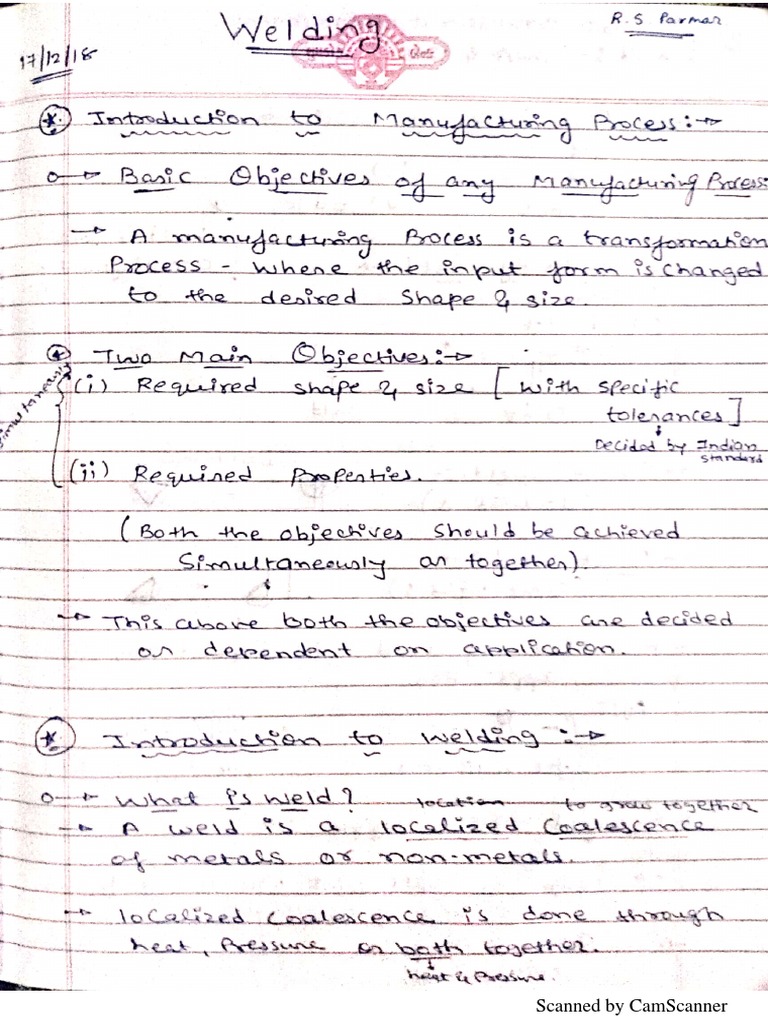 Welding
R.S Parmar
17/12/18
Introduction to Manufacturing Process:→
Basic Objectives of any Manufacturing Process:
→ A manufacturing Process is a transformation
Process - where the input form is changed
to the desired shape & size.
Two Main Objectives:→
(i) Required shape & size [with specific
tolerances]
Decided by Indian
standard
simultaneously
(ii) Required Properties.
(Both the objectives should be achieved
simultaneously or together).
→ This above both the objectives are decided
or dependent on application.
Introduction to welding :→
→ What is weld?
location to grow together
→ A weld is a localized coalescence
of metals or non-metals.
→ localized coalescence is done through
heat, Pressure or both together.
heat & Pressure.
Scanned by CamScanner